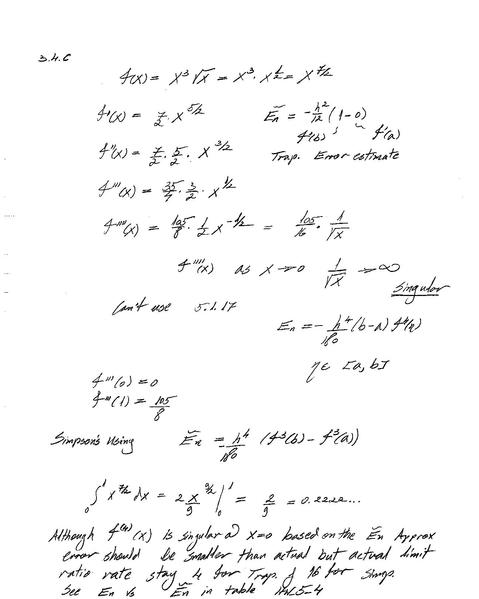 3.4.C
f(x) = x³√x = x³·x^½ = x^7/2
f'(x) = 7/2 · x^5/2    Ẽn = -h²/12 (1-0)
f'(b) ; f'(a)
f''(x) = 7/2 · 5/2 · x^3/2    Trap. Error estimate
f'''(x) = 35/4 · 3/2 · x^1/2
f''''(x) = 105/8 · 1/2 x^-1/2 = 105/16 · 1/√x
f''''(x) as x→0 1/√x → ∞
Singular
Can't use 5.1.17
En = - h⁴/180 (b-a) f⁴(η)
η ∈ [a, b]
f'''(0) = 0
f'''(1) = 105/8
Simpson's Using Ẽn = -h⁴/180 (f³(b) - f³(a))
₀∫¹ x^7/2 dx = 2x^9/2/9 |₀¹ = 2/9 = 0.2222...
Although f⁽⁴⁾(x) is singular @ x=0 based on the Ẽn Approx
error should be smaller than actual but actual limit
ratio rate stay 4 for Trap. & 16 for Simp.
See En vs Ẽn in table